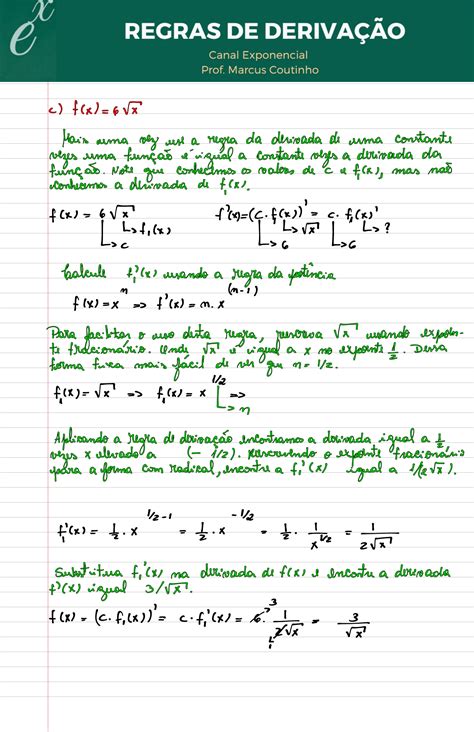 e^x
REGRAS DE DERIVAÇÃO
Canal Exponencial
Prof. Marcus Coutinho
c) f(x) = 6√x
Mais uma vez use a regra da derivada de uma constante
vezes uma função é igual a constante vezes a derivada da
função. Note que conhecemos os valores de c e f(x), mas não
conhecemos a derivada de f(x).
f(x) = 6√x f'(x) = (c. f₁(x))' = c. f₁(x)'
↳ f₁(x) ↳ √x ↳ ?
↳ c ↳ 6 ↳ 6
Calcule f₁'(x) usando a regra da potência
f(x) = x^n => f'(x) = n. x^(n-1)
Para facilitar o uso desta regra, reescreva √x usando expoen-
te fracionário. Onde √x é igual a x no expoente 1/2. Dessa
forma fica mais fácil de ver que n = 1/2.
f₁(x) = √x => f₁(x) = x^1/2 =>
↳ n
Aplicando a regra de derivação encontramos a derivada igual a 1/2
vezes x elevado a (- 1/2). Reescrevendo o expoente fracionário
para a forma com radical, encontre a f₁'(x) igual a 1/(2√x).
f₁'(x) = 1/2 . x^1/2-1 = 1/2 . x^-1/2 = 1/2 . 1/x^1/2 = 1/2√x
Substitua f₁'(x) na derivada de f(x) e encontre a derivada
f'(x) igual 3/√x.
f(x) = (c. f₁(x))' = c. f₁'(x) = 6 3 . 1/2√x 1 = 3/√x